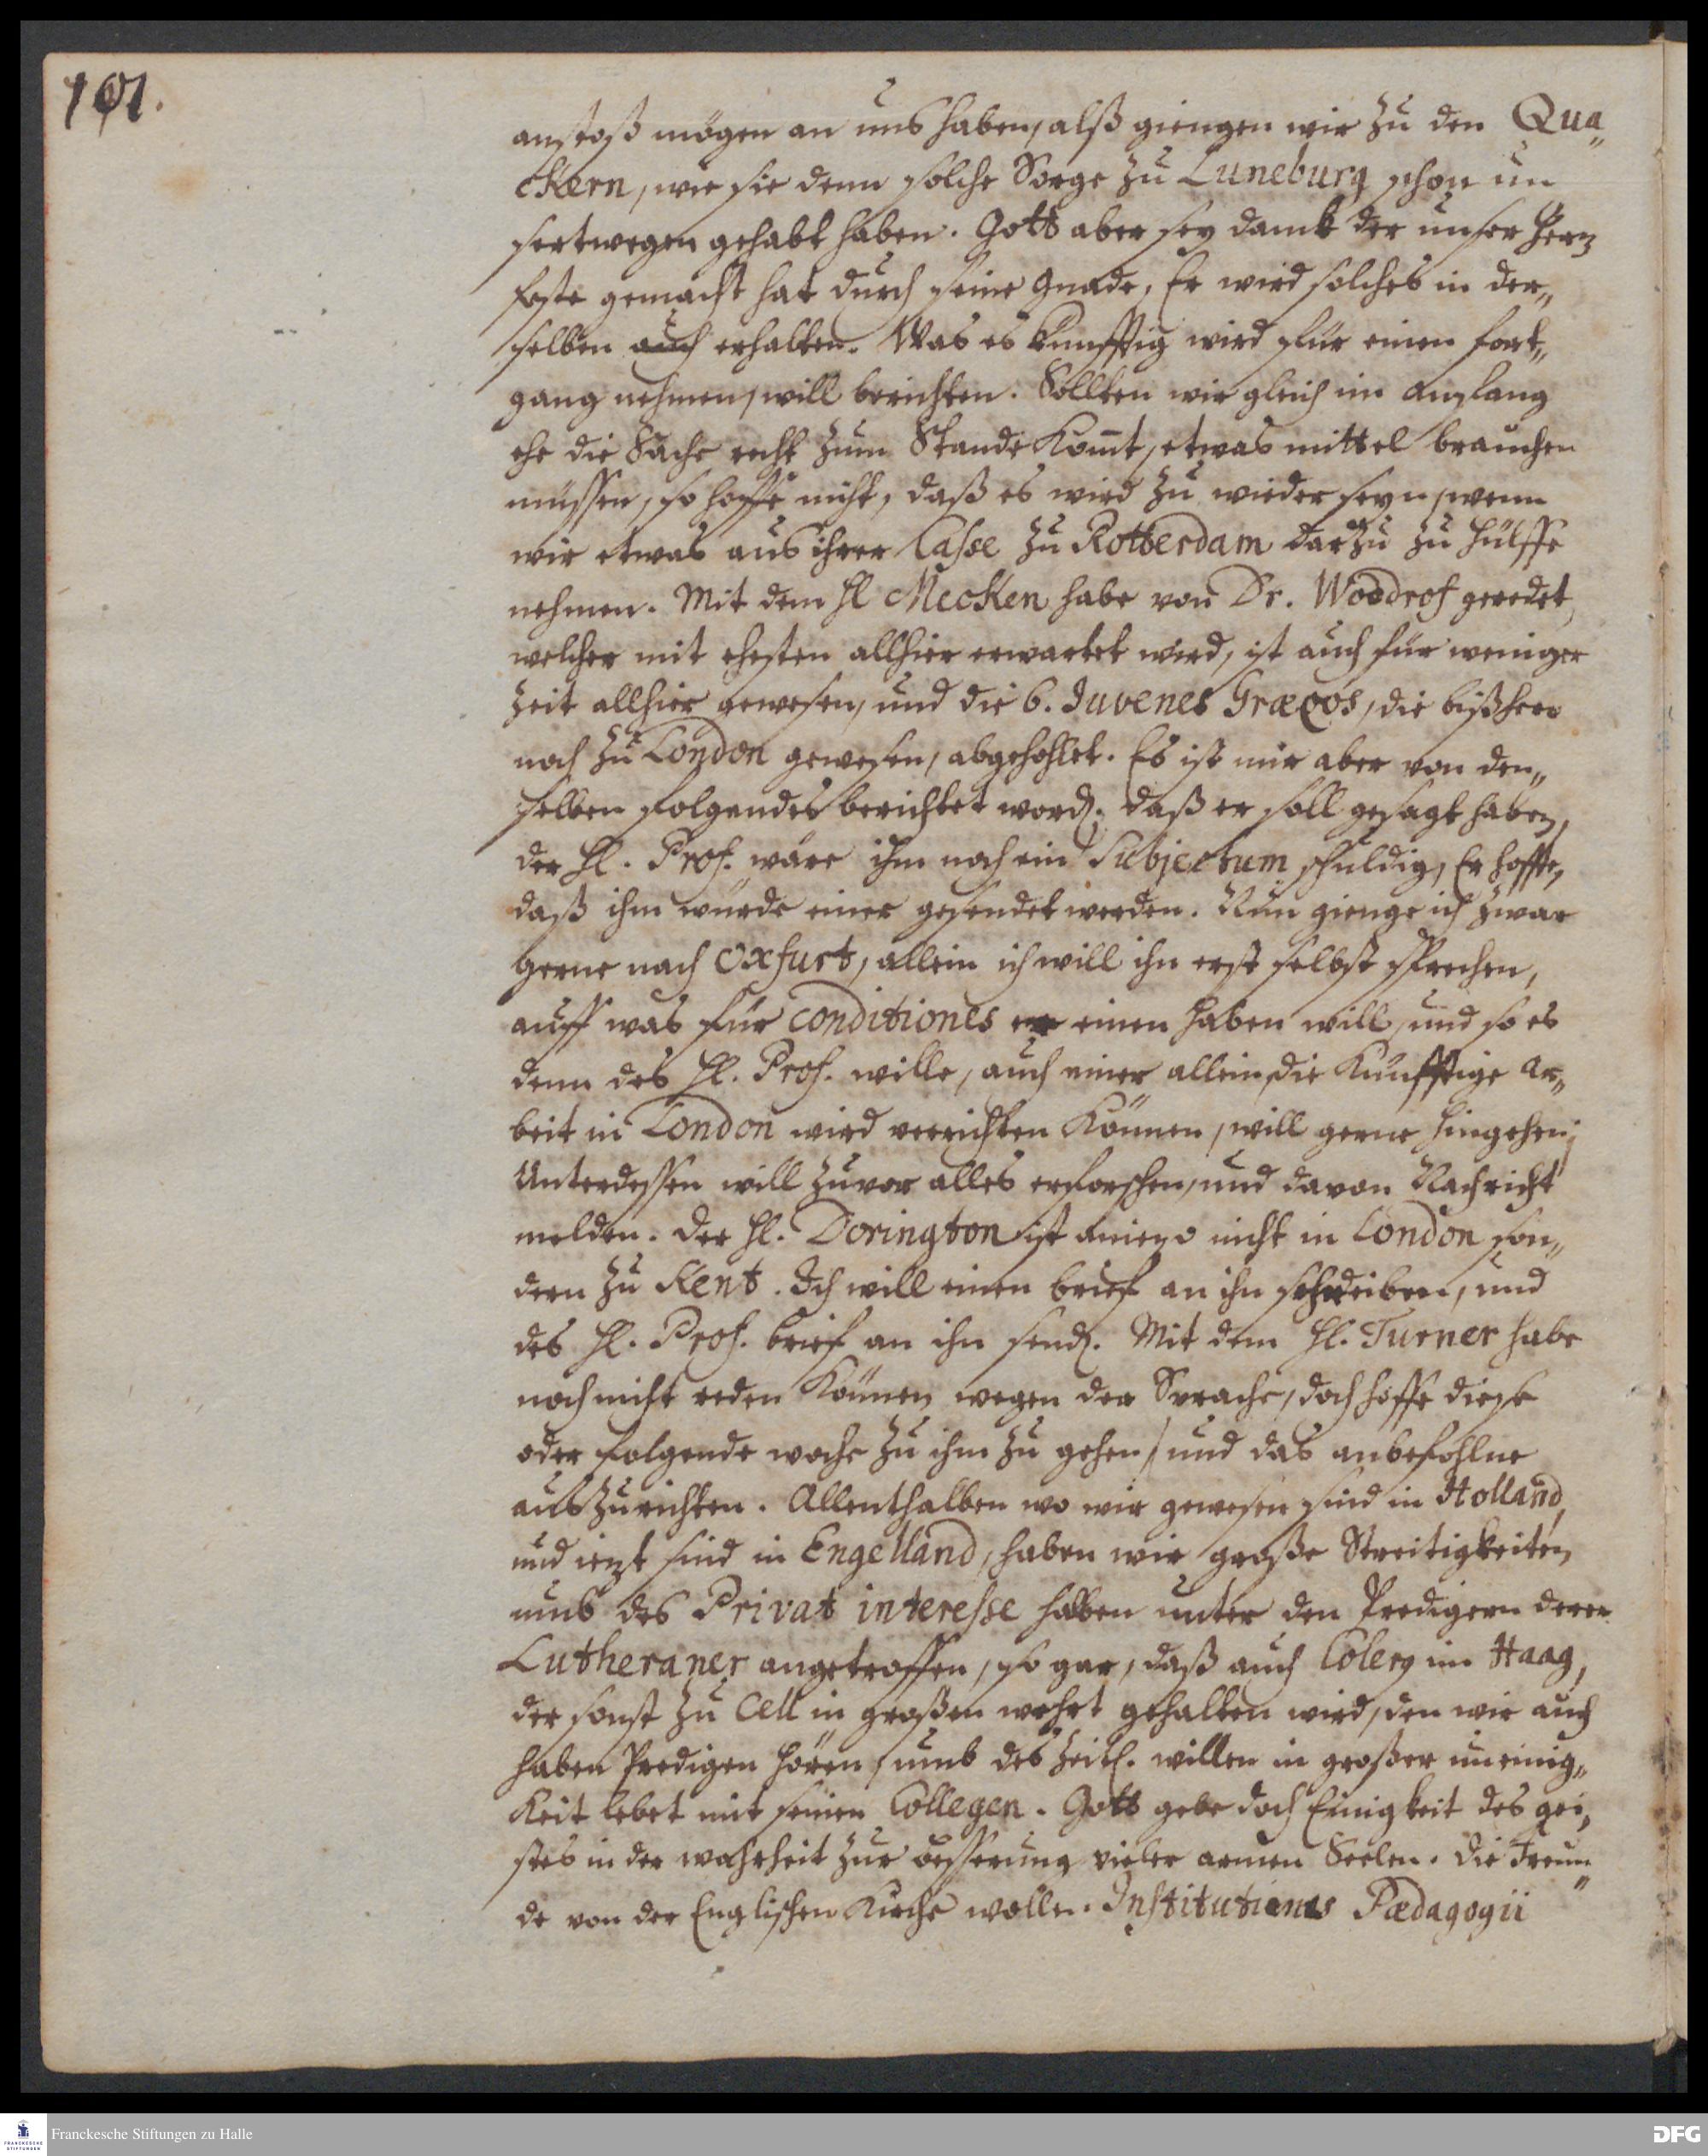 101.
anstoß mögen an uns haben, alß giengen wir zu den Qua„
ckern, wie sie denn solche Sorge zu Luneburg schon un
sertwegen gehabt haben. Gott aber sey danck der unser Hertz
feste gemacht hat durch seine Gnade, Er wird solches in der„
selben auch erhalten. Was es künfftig wird für einen fort„
gang nehmen, will berichten. Sollten wir gleich im anfang
ehe die Sache recht zum Stande komt, etwas mittel brauchen
müssen, so hoffe nicht, daß es wird zu wieder seyn, wenn
wir etwas aus ihrer Casse zu Rotterdam darzu zu hülffe
nehmen. Mit dem Hl Mecken habe von Dr. Woodrof geredet,
welcher mit ehesten allhier erwartet wird, ist auch für weniger
Zeit allhier gewesen, und die 6. Juvenes Græcos, die bißher
noch zu London gewesen, abgehohlet. Es ist mir aber von den„
selben folgendes berichtet word. daß er soll gesagt haben,
der Hl. Prof. wäre ihm noch ein Subjectum schuldig, Er hoffe,
daß ihm würde einer gesendet werden. Nun gienge ich zwar
gerne nach Oxfurt, allein ich will ihn erst selbst sprechen,
auff was für conditiones er einen haben will, und so es
denn des Hl. Prof. wille, auch einer allein die künfftige Ar„
beit in London wird verrichten können, will gerne hingehen;
Unterdessen will zuvor alles erforschen, und davon Nachricht
melden. Der Hl. Dorington ist anietzo nicht in London son„
dern zu Kent. Ich will einen brief an ihn schreiben, und
des Hl. Prof. brief an ihn send. Mit dem Hl. Turner habe
noch nicht reden können wegen der Sprache, doch hoffe diese
oder folgende woche zu ihm zu gehen, und das anbefohlne
auszurichten. Allenthalben wo wir gewesen sind in Holland,
und ietzt sind in Engelland, haben wir große Streitigkeiten
umb des Privat interesse halben unter den Predigern derer
Lutheraner angetroffen, so gar, daß auch Colery im Haag,
der sonst zu Cell in großen wehrt gehalten wird, den wir auch
haben Predigen hören, umb des Zeitl. willen in großer uneinig„
keit lebet mit seinen Collegen. Gott gebe doch Einigkeit des gei„
stes in der wahrheit zur besserung vieler armen Seelen. Die Freun„
de von der Englischen Kirche wollen Institutiones Pædagogii
Franckesche Stiftungen zu Halle
FRANCKESCHE STIFTUNGEN
DFG